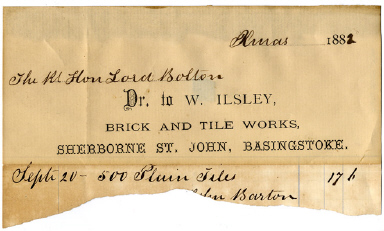 Xmas 1882
The Rt Hon Lord Bolton
Dr. to W. ILSLEY,
BRICK AND TILE WORKS,
SHERBORNE ST. JOHN, BASINGSTOKE.
Sept 20 - 500 Plain Tiles 17 6
John Barton